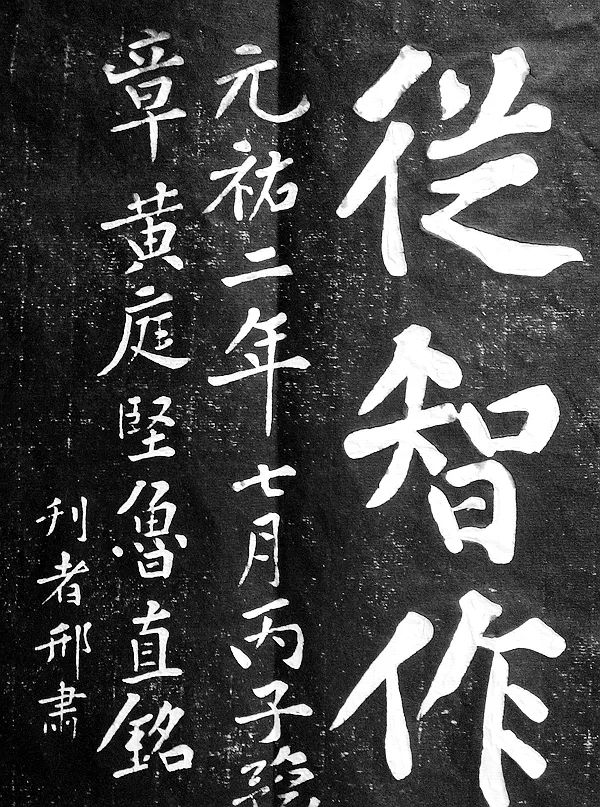 從智作
元祐二年七月丙子豫
章黃庭堅魯直銘
刊者邢肅